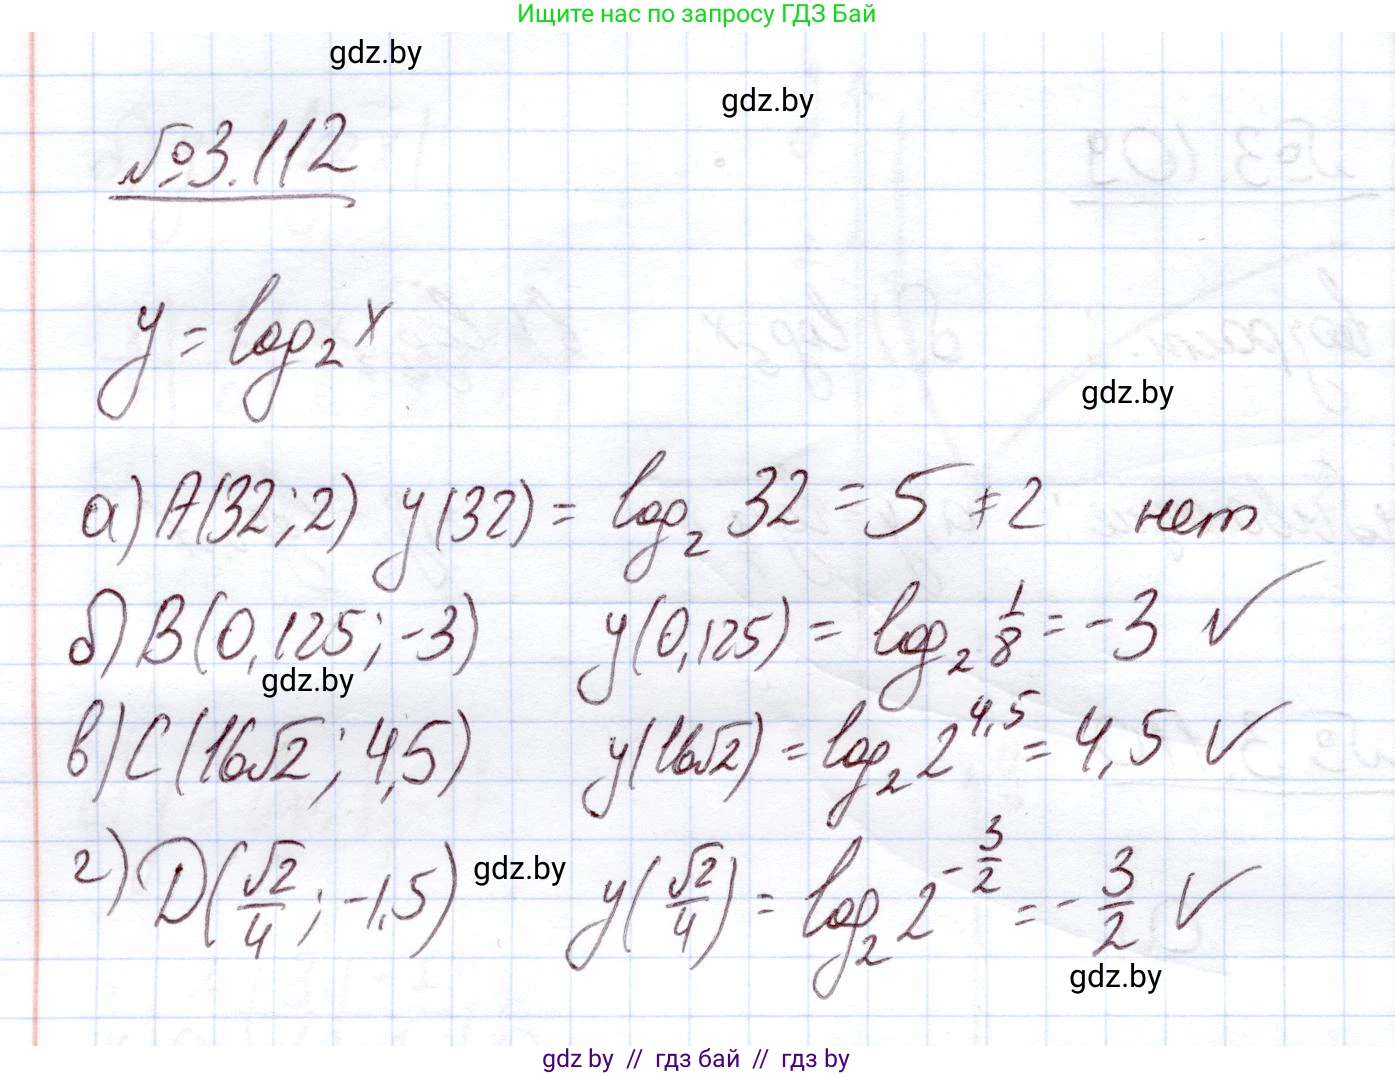 Ищите нас по запросу ГДЗ Бай
gdz.by
gdz.by
№3.112
y = log₂ x
gdz.by
а) A(32; 2) y(32) = log₂ 32 = 5 ≠ 2 нет
б) B(0,125; -3) y(0,125) = log₂ 1/8 = -3 ✓
gdz.by
в) C(16√2; 4,5) y(16√2) = log₂ 2^4,5 = 4,5 ✓
г) D(√2/4; -1,5) gdz.by y(√2/4) = log₂ 2^(-3/2) = -3/2 ✓
gdz.by
gdz by // гдз бай // гдз by